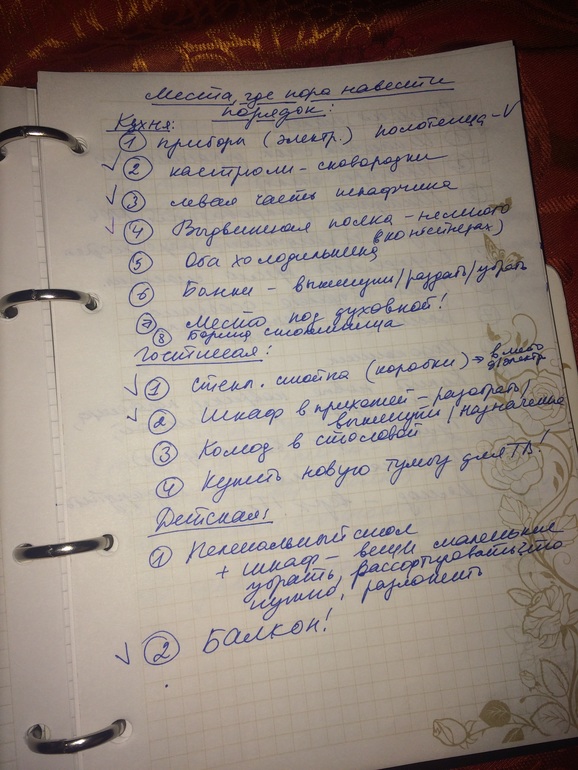 Места, где пора навести
порядок:
Кухня:
1 приборы (электр.) полотенца - V
✓ 2 кастрюли - сковородки
✓ 3 левая часть шкафчика
✓ 4 Выдвижная полка - немного
(в контейнерах)
5 Оба холодильника
6 Банки - выкинуть/раздать/убрать
7 Место под духовкой!
8 Барная столешница
Гостиная:
✓ 1 Стекл. стойка (коробки) → в мебо
д/электр
✓ 2 Шкаф в прихожей - разобрать/
выкинуть/назначение
3 Комод в столовой
4 Купить новую тумбу для ТВ!
Детская:
1 Пеленальный стол
+ шкаф - вещи маленькие
убрать, рассортировать что
нужно, разложить
✓ 2 Балкон!